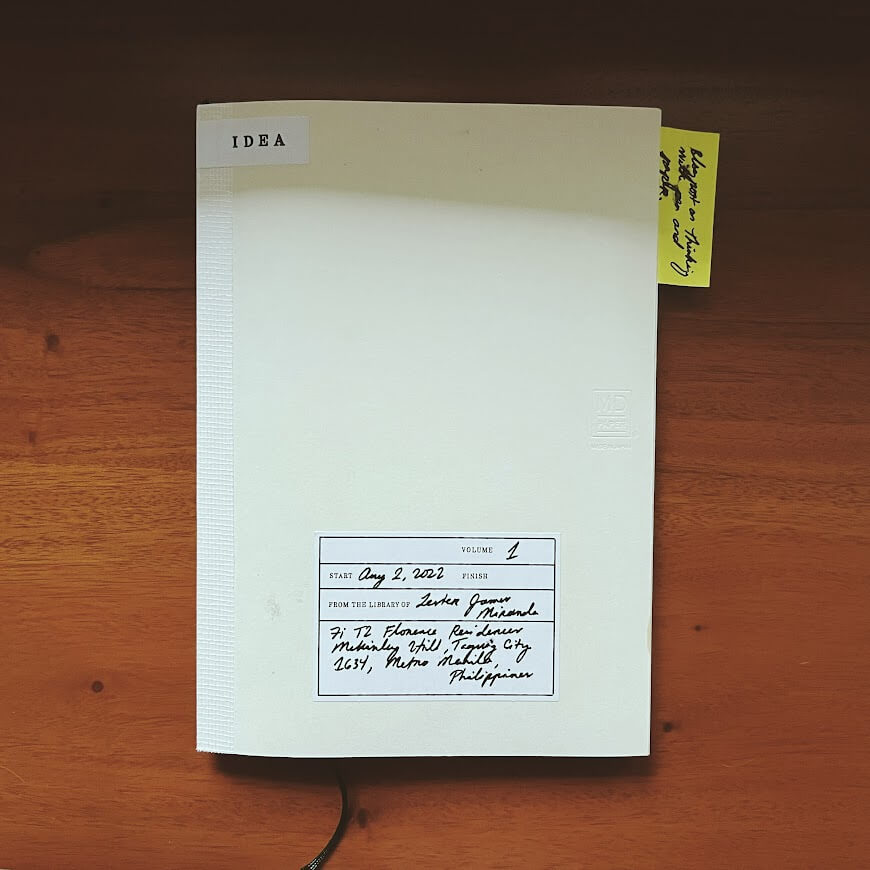 IDEA
Blogpost on Thinking
with pen and
paper.
MD
PAPER
MADE IN JAPAN
VOLUME 1
START Aug 2, 2022 FINISH
FROM THE LIBRARY OF Lester James
Miranda
7i T2 Florence Residences
McKinley Hill, Taguig City
1634, Metro Manila,
Philippines